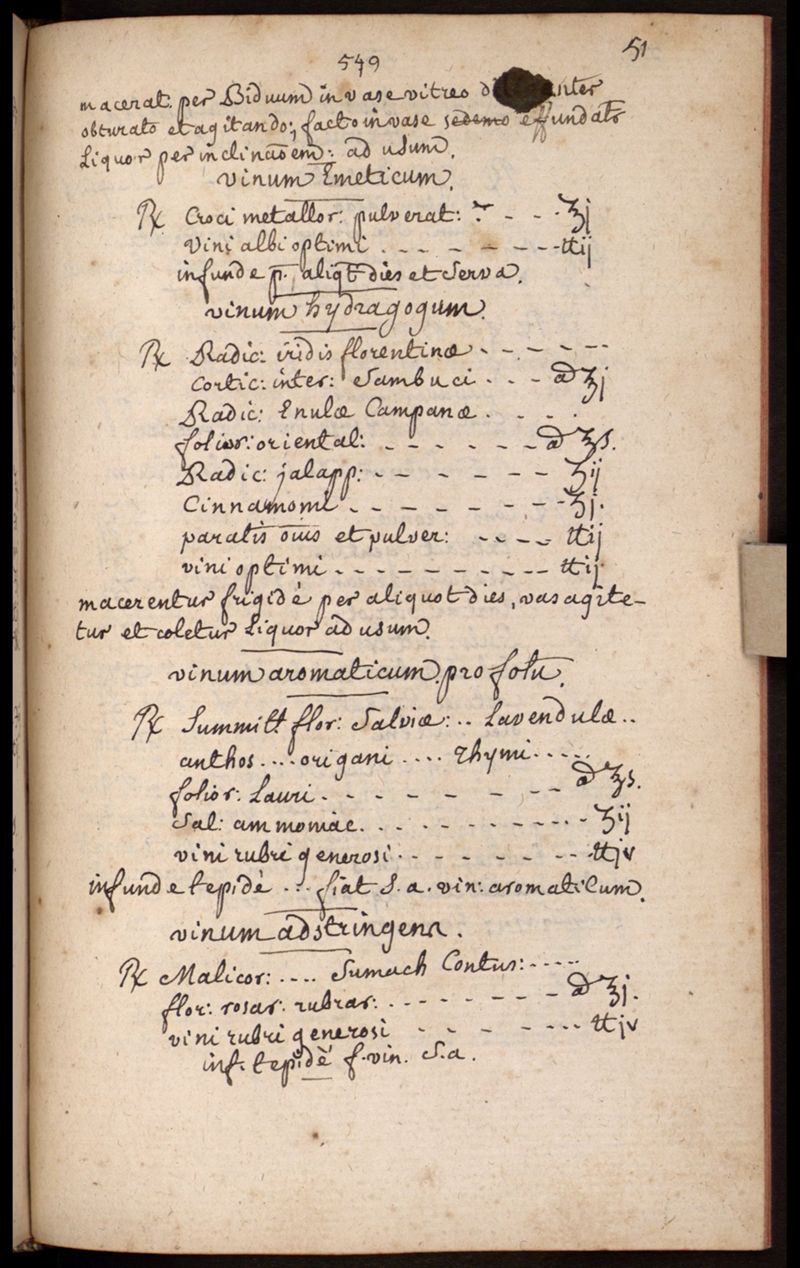 549
51
macerat. per Biduum in vase vitreo
obturato et agitando:, facto in vase sedemo effundatr
Liquor per inclinaoem: ad usum.
vinum Emeticum.
℞ Croci metallor: pulverat: - - - ʒj
Vini albi optimi - - - - - - - ℔ij
infunde p. aliqt dies et Serva.
vinum hydragogum.
℞ Radic: iridis florentinæ - - - - - -
Cortic: inter: Sambuci - - - a ʒj
Radic: Enulæ Campanæ - - - -
folior: oriental: - - - - - - a ʒs.
Radic: jalapp: - - - - - - ʒij
Cinnamomi - - - - - - - ʒj.
paratis oius et pulver: - - - - ℔ij
vini optimi - - - - - - - - - ℔ij
macerentur frigidè per aliquot dies, vas agite-
tur et coletur Liquor ad usum.
vinum aromaticum pro fotu.
℞ Summitt flor: Salviæ: .. Lavendulæ ..
anthos .... origani .... Thymi .....
folior. Lauri - - - - - - - - a ʒs.
Sal: ammoniac. - - - - - - - - - ʒij
vini rubri generosi - - - - - - - ℔jv
infunde tepidè ... fiat S. a. vin: aromaticum.
vinum adstringens.
℞ Malicor: .... Sumach Contus: .....
flor: rosar: rubrar: - - - - - - - a ʒj.
vini rubri generosi - - - - - - - ℔jv
inf. tepidè f. vin. S. a.